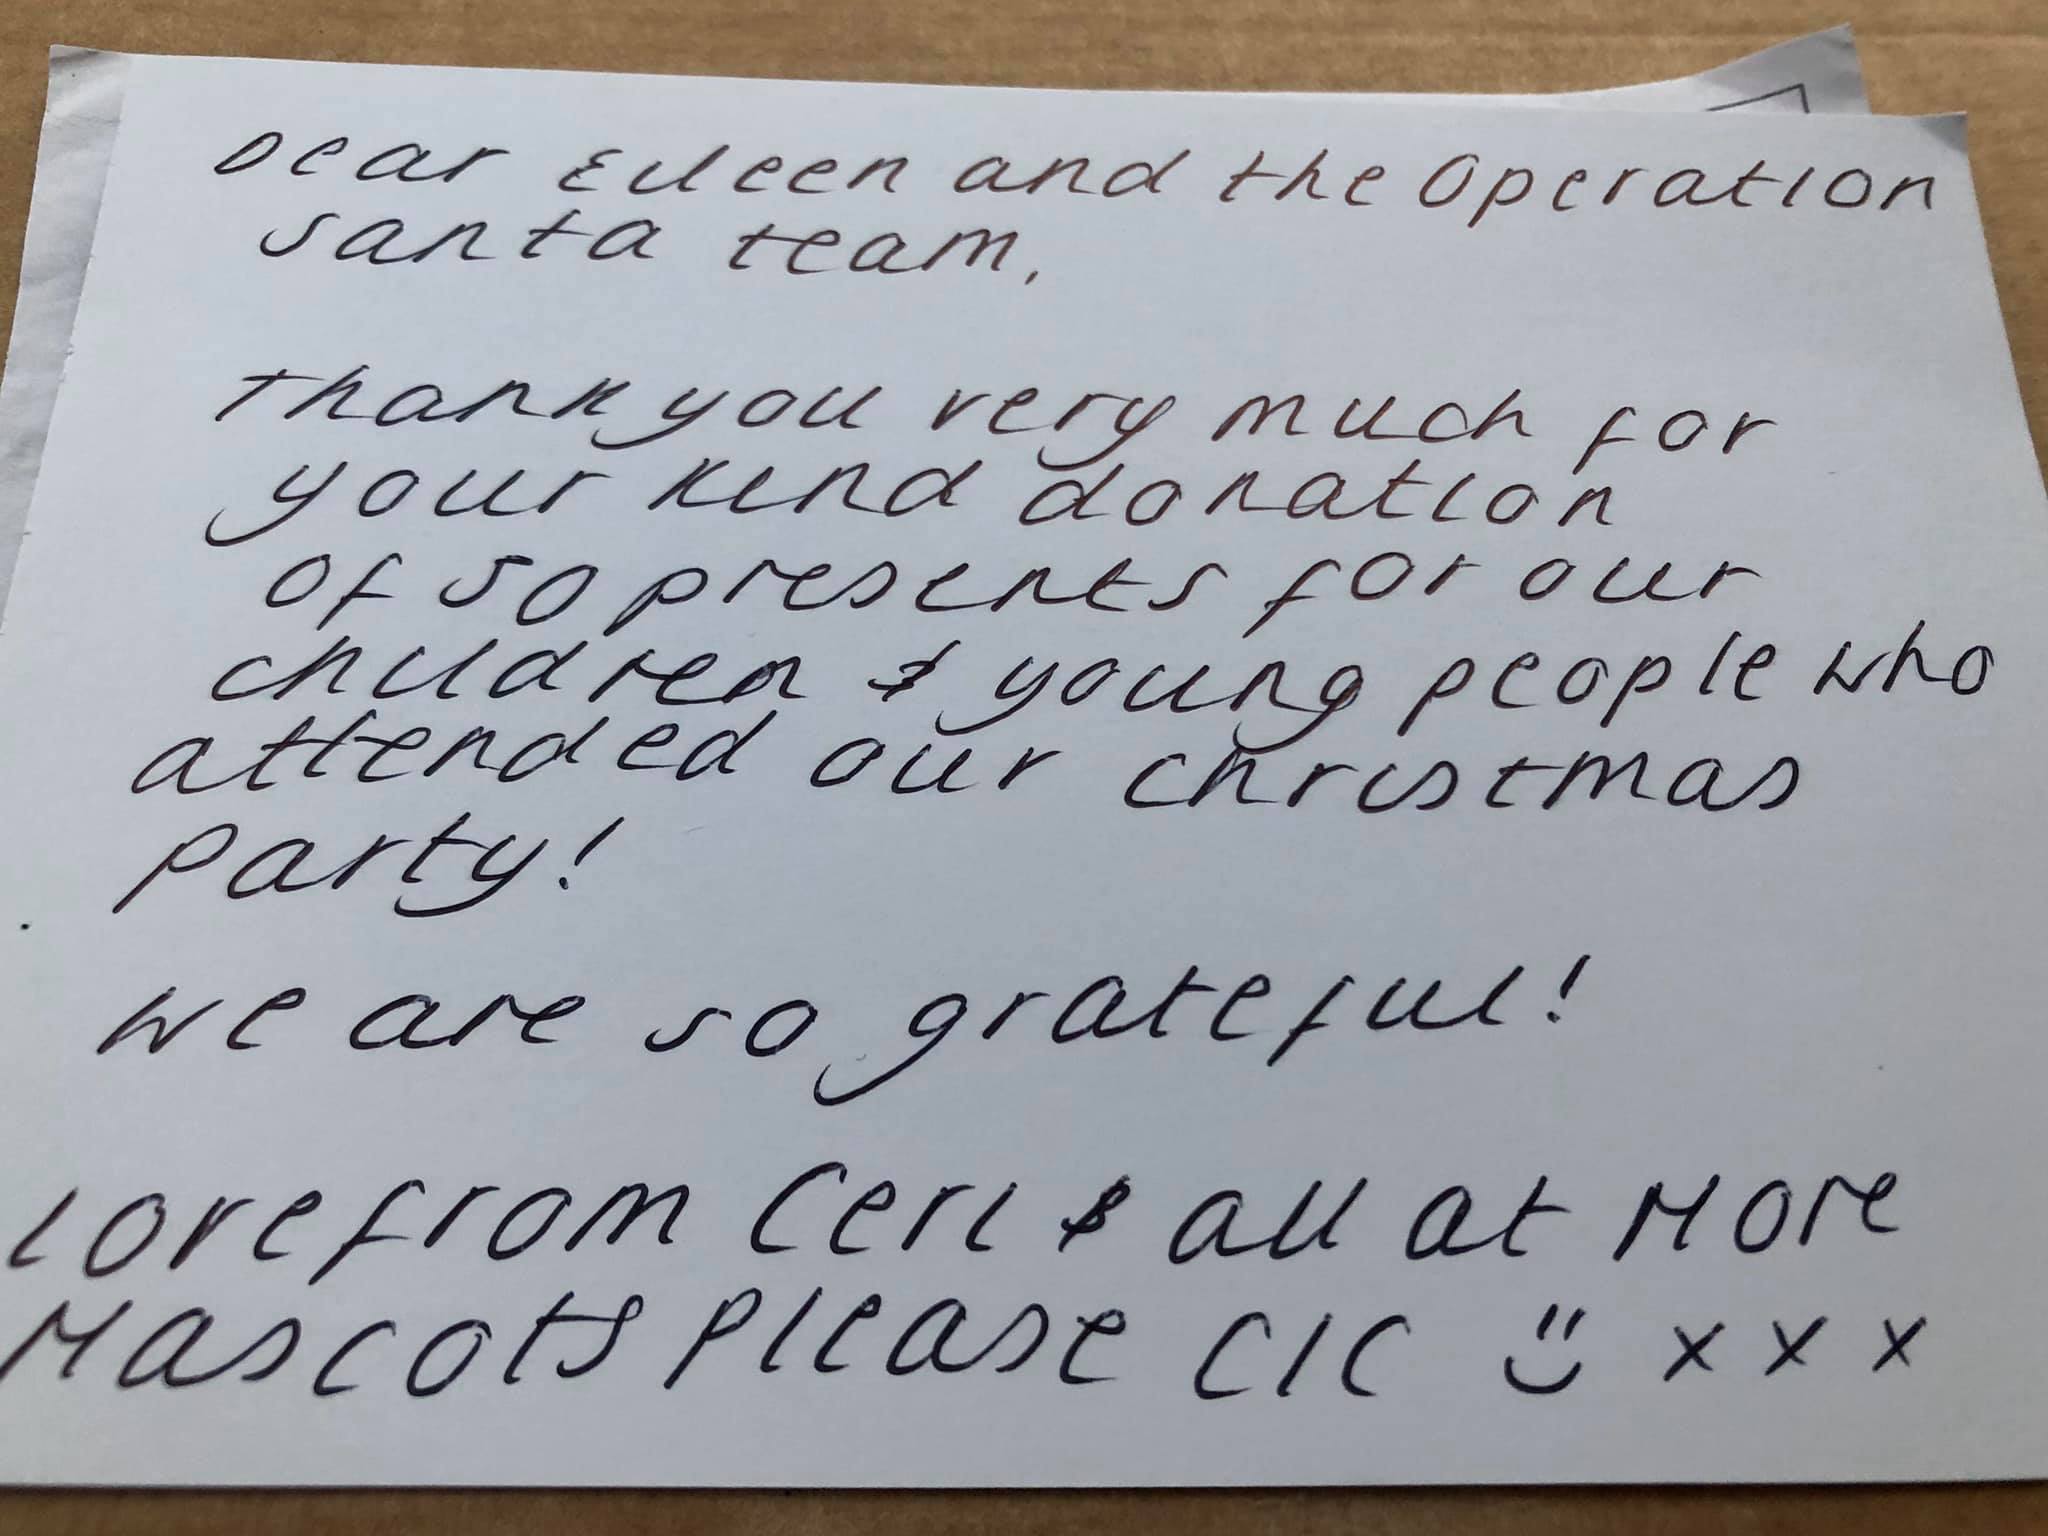 Dear Eileen and the Operation
Santa team,
Thank you very much for
your kind donation
of 50 presents for our
children & young people who
attended our christmas
party!
We are so grateful!
Love from Ceri & all at More
Mascots Please CIC x x x